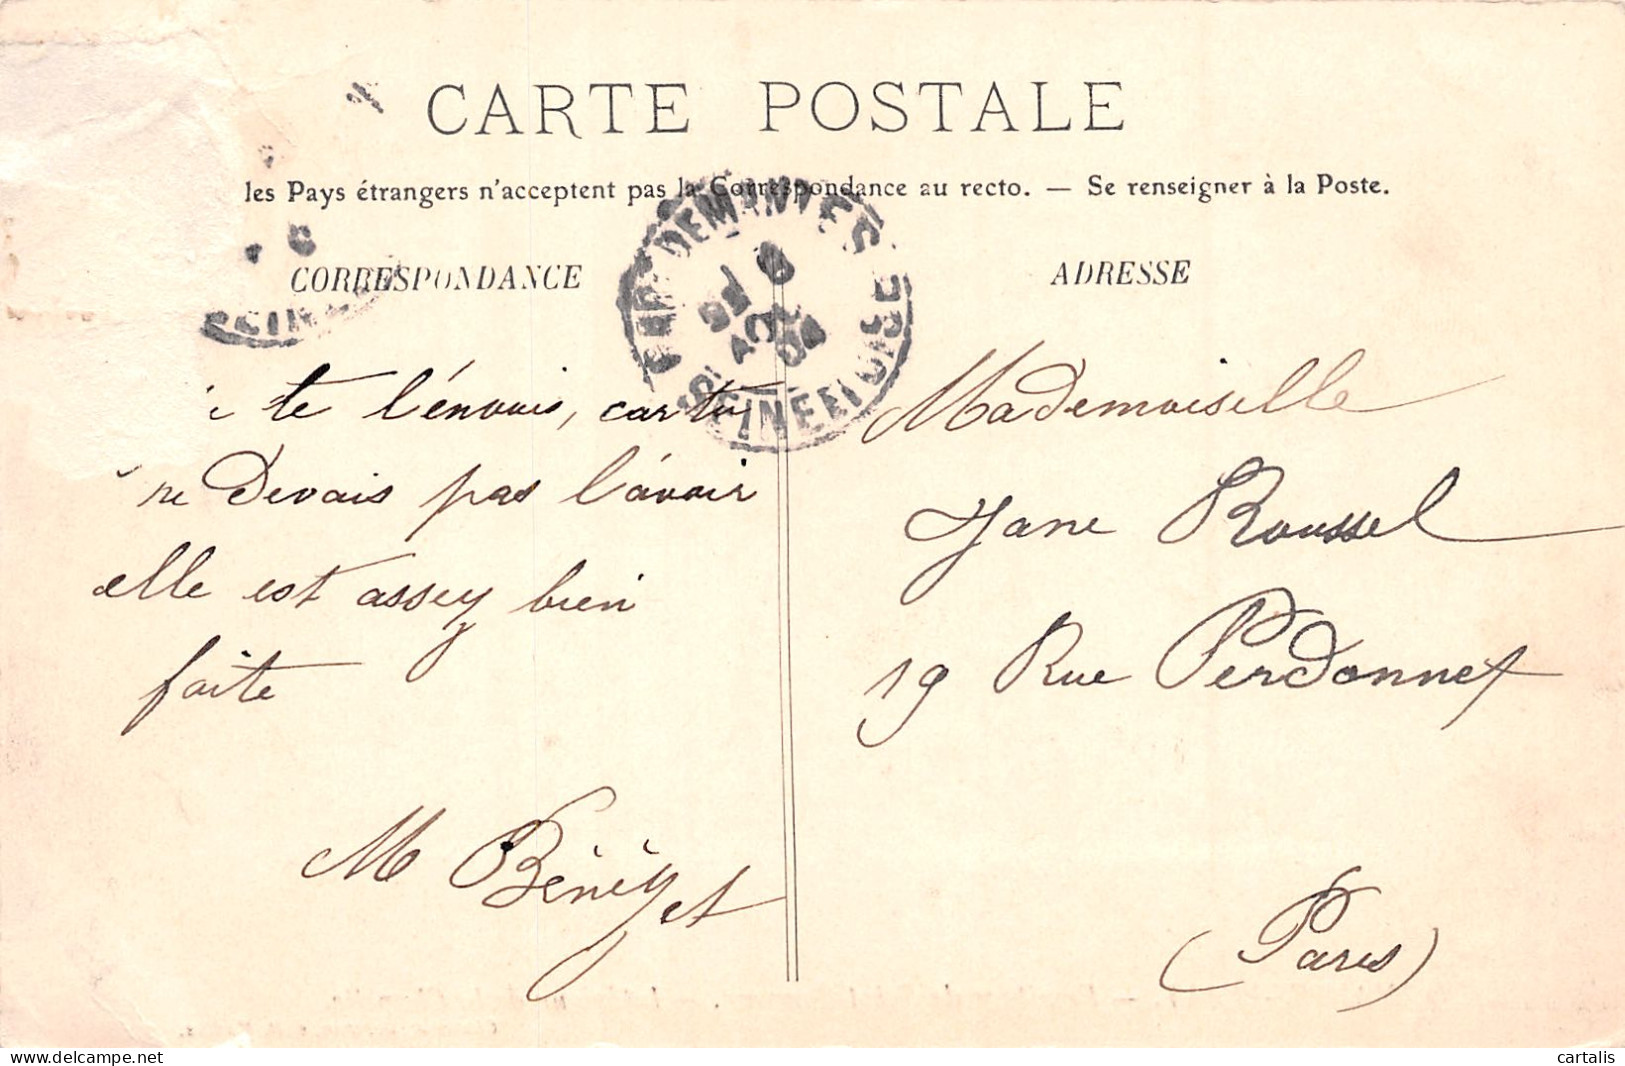 CARTE POSTALE
les Pays étrangers n'acceptent pas la Correspondance au recto. — Se renseigner à la Poste.
CORRESPONDANCE
te l'énvois, car tu
ne devais pas l'avoir
elle est assez bien
faite
M Bénézet
ADRESSE
Mademoiselle
Jane Roussel
19 Rue Perdonnet
(Paris)
MANTES
SEINE ET OISE
cartalis